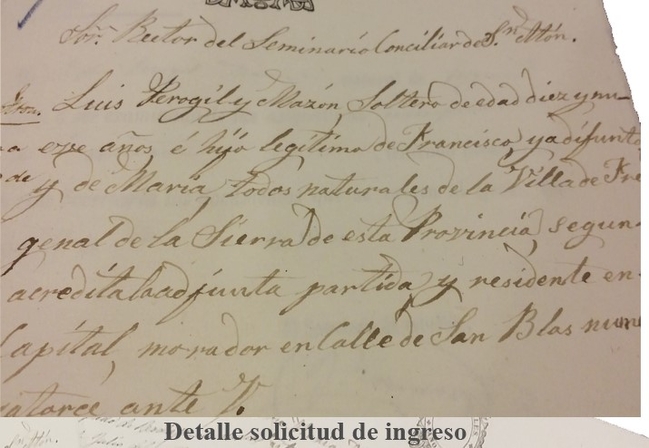 Sor. Rector del Seminario Conciliar de Sn. Atón.
Luis Perogil y Mazón, Soltero de edad diez y nu-
eve años é hijo legítimo de Francisco, ya difunto
y de María, todos naturales de la Villa de Fre
genal de la Sierra de esta Provincia, segun
acredita la adjunta partida, y residente en
Capital, morador en Calle de San Blas num
catorce ante V.
Detalle solicitud de ingreso